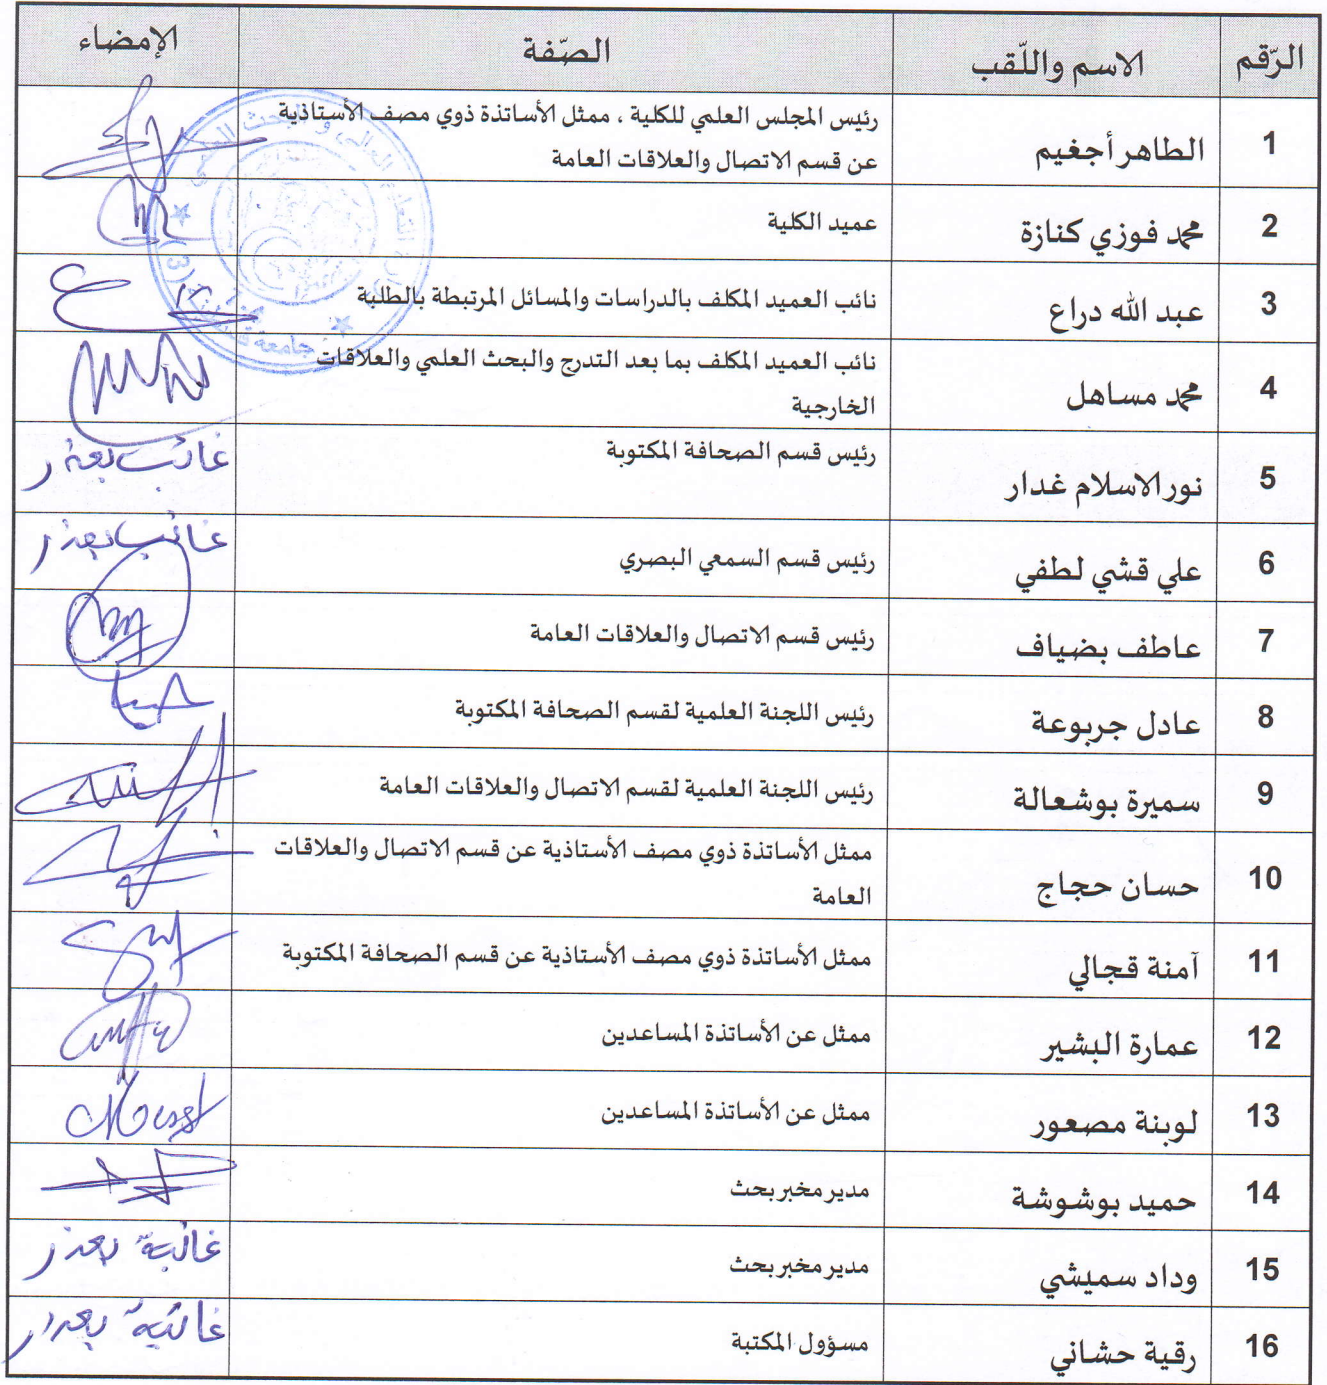 الرّقم الاسم واللّقب الصّفة الإمضاء
1 الطاهر أجغيم رئيس المجلس العلمي للكلية ، ممثل الأساتذة ذوي مصف الأستاذية
عن قسم الاتصال والعلاقات العامة
2 محمد فوزي كنازة عميد الكلية
3 عبد الله دراع نائب العميد المكلف بالدراسات والمسائل المرتبطة بالطلبة
4 محمد مساهل نائب العميد المكلف بما بعد التدرج والبحث العلمي والعلاقات
الخارجية
5 نور الاسلام غدار رئيس قسم الصحافة المكتوبة غائب بعذر
6 علي قشي لطفي رئيس قسم السمعي البصري غائب بعذر
7 عاطف بضياف رئيس قسم الاتصال والعلاقات العامة
8 عادل جربوعة رئيس اللجنة العلمية لقسم الصحافة المكتوبة
9 سميرة بوشعالة رئيس اللجنة العلمية لقسم الاتصال والعلاقات العامة
10 حسان حجاج ممثل الأساتذة ذوي مصف الأستاذية عن قسم الاتصال والعلاقات
العامة
11 آمنة قجالي ممثل الأساتذة ذوي مصف الأستاذية عن قسم الصحافة المكتوبة
12 عمارة البشير ممثل عن الأساتذة المساعدين
13 لوبنة مصعور ممثل عن الأساتذة المساعدين
14 حميد بوشوشة مدير مخبر بحث
15 وداد سميشي مدير مخبر بحث غائبة بعذر
16 رقية حشاني مسؤول المكتبة غائبة بعذر